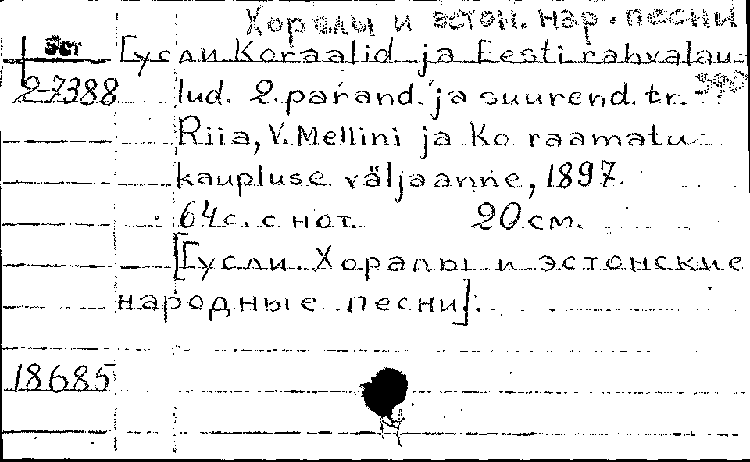 Хоралы и эстон. нар. песни
Эст
[Гусли. Koraalid ja Eesti rahvalau-
27388 lud. 2. parand. ja suurend. tr.
Riia, V. Mellini ja Ko raamatu-
kaupluse väljaanne, 1897.
64 с. с нот. 20 см.
[Гусли. Хоралы и эстонские
народные песни].
18685